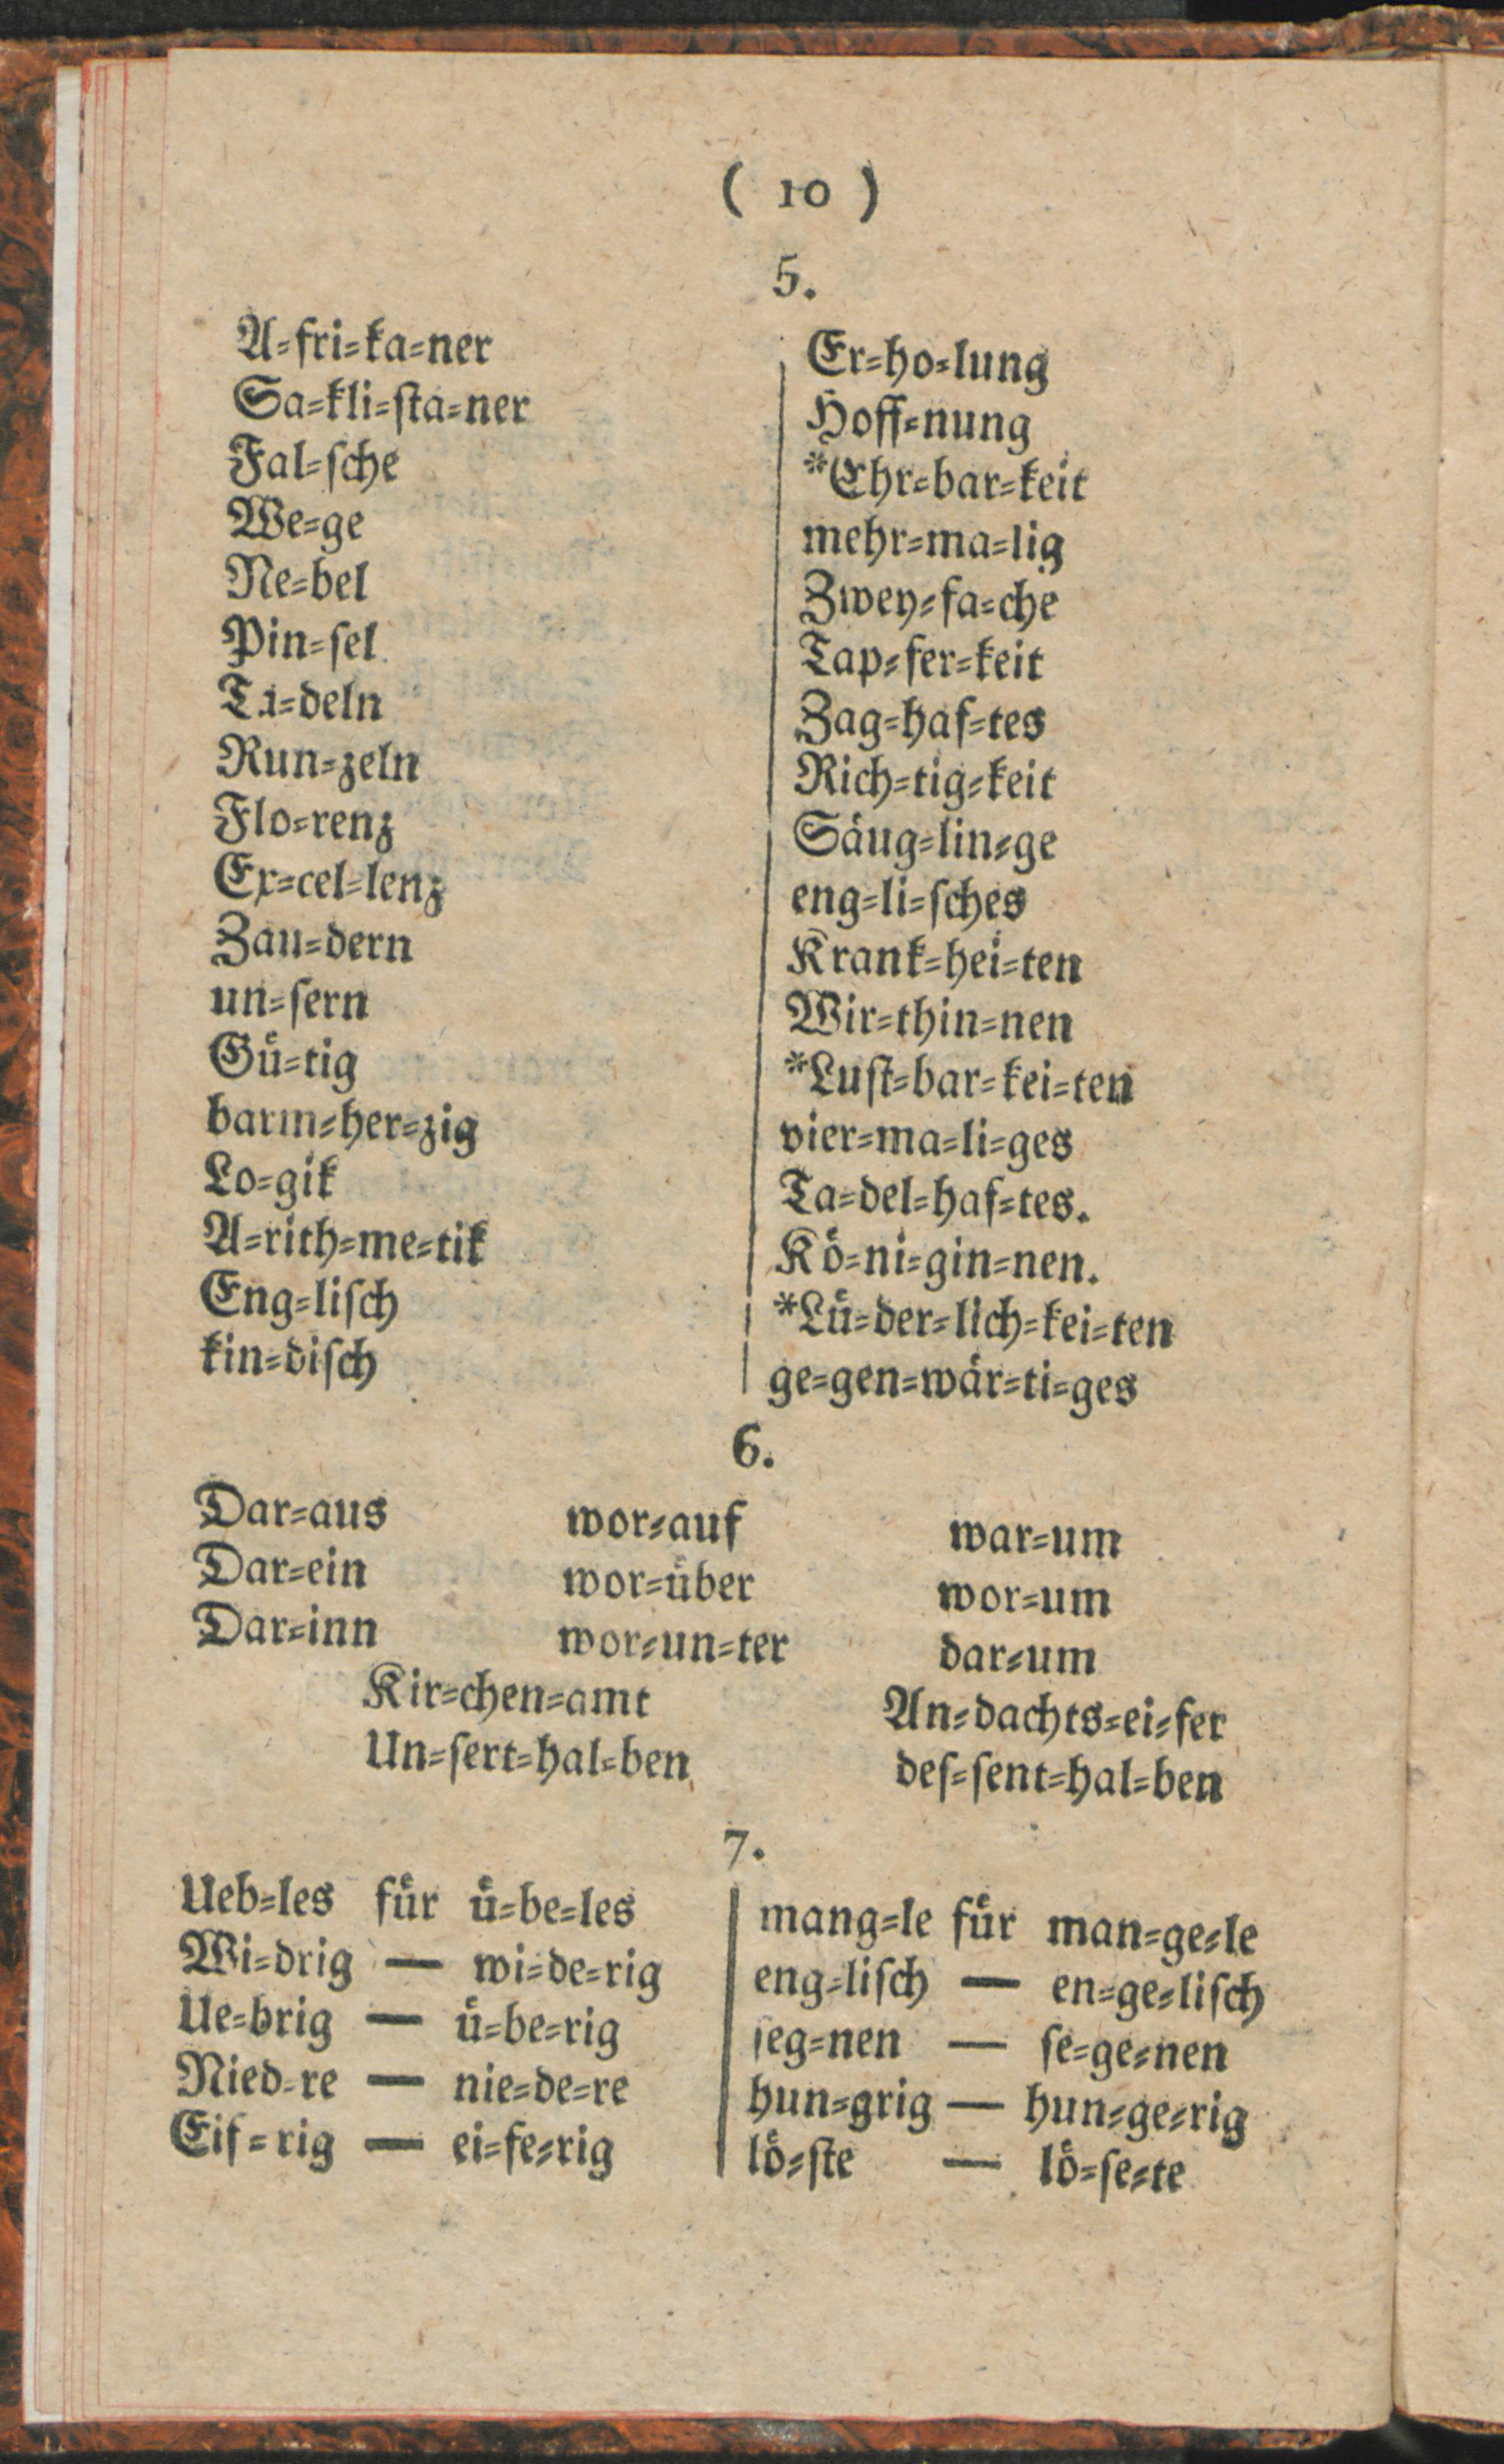 ( 10 )
5.
A=fri=ka=ner
Sa=kli=ſta=ner
Fal=ſche
We=ge
Ne=bel
Pin=ſel
Ta=deln
Run=zeln
Flo=renz
Ex=cel=lenz
Zau=dern
un=ſern
Guͤ=tig
barm=her=zig
Lo=gik
A=rith=me=tik
Eng=liſch
kin=diſch
Er=ho=lung
Hoff=nung
*Ehr=bar=keit
mehr=ma=lig
Zwey=fa=che
Tap=fer=keit
Zag=haf=tes
Rich=tig=keit
Saͤug=lin=ge
eng=li=ſches
Krank=hei=ten
Wir=thin=nen
*Luſt=bar=kei=ten
vier=ma=li=ges
Ta=del=haf=tes.
Koͤ=ni=gin=nen.
*Luͤ=der=lich=kei=ten
ge=gen=waͤr=ti=ges
6.
Dar=aus wor=auf war=um
Dar=ein wor=uͤber wor=um
Dar=inn wor=un=ter dar=um
Kir=chen=amt An=dachts=ei=fer
Un=ſert=hal=ben deſ=ſent=hal=ben
7.
Ueb=les fuͤr uͤ=be=les
Wi=drig — wi=de=rig
Ue=brig — uͤ=be=rig
Nied=re — nie=de=re
Eif=rig — ei=fe=rig
mang=le fuͤr man=ge=le
eng=liſch — en=ge=liſch
ſeg=nen — ſe=ge=nen
hun=grig — hun=ge=rig
loͤ=ſte — loͤ=ſe=te